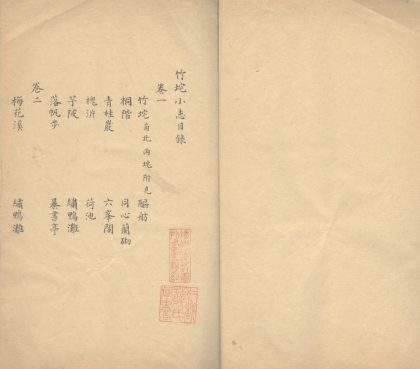 竹垞小志目錄
卷一
竹垞南北兩垞附見 醧舫
桐階 同心蘭砌
青桂巖 六峯閣
槐沜 荷池
芋陂 繡鴨灘
落帆步 曝書亭
卷二
梅花溪 繡鴨灘